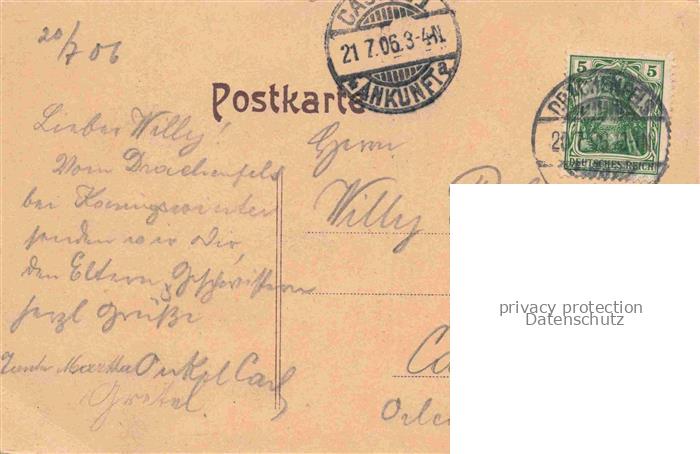 20/7 06
CASSEL 1
21 7.06.3-4N
*ANKUNFT a
5 5
DRACHENFELS
DEUTSCHES REICH
Postkarte
Lieber Willy!
Vom Drachenfels
bei Koenigswinter
senden wir Dir,
den Eltern & Geschwistern
herzl Grüße
Tante Martha Onkel Carl
Gretel.
Herrn
Willy
Ca
privacy protection
Datenschutz